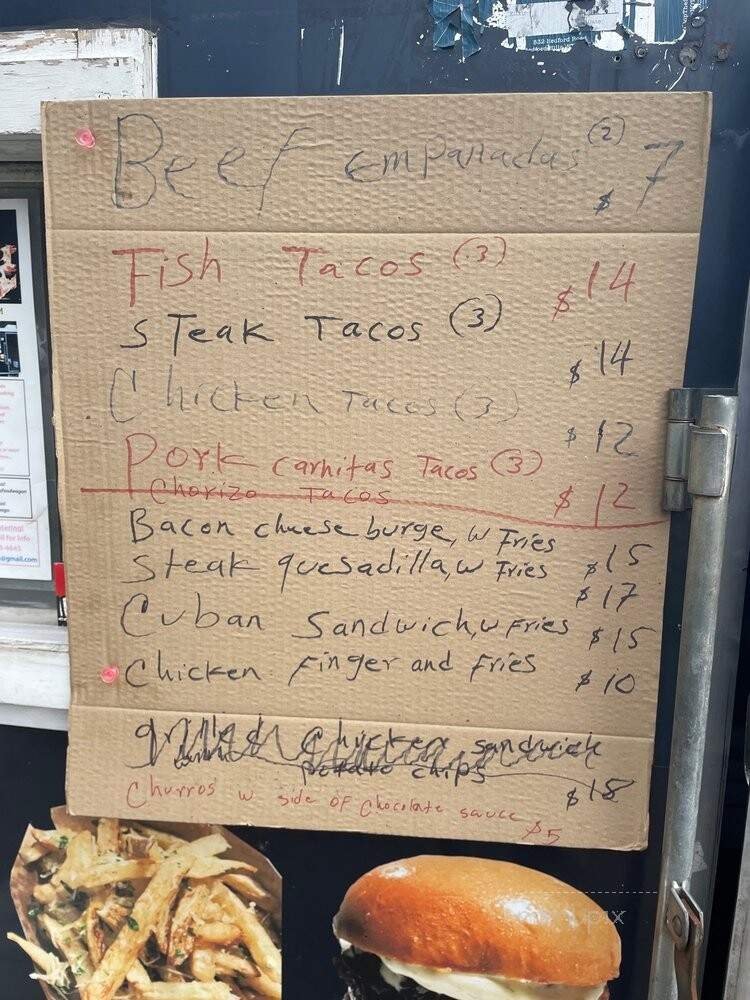 Beef empanadas (2) $ 7
Fish Tacos (3) $ 14
sTeak Tacos (3) $ 14
Chicken Tacos (3) $ 12
Pork carnitas Tacos (3) $ 12
Chorizo Tacos
Bacon cheese burge, w Fries $ 15
Steak quesadilla, w Fries $ 17
Cuban Sandwich, w Fries $ 15
Chicken Finger and Fries $ 10
grilled Chicken sandwich
potato chips $ 18
Churros w side of chocolate sauce $5